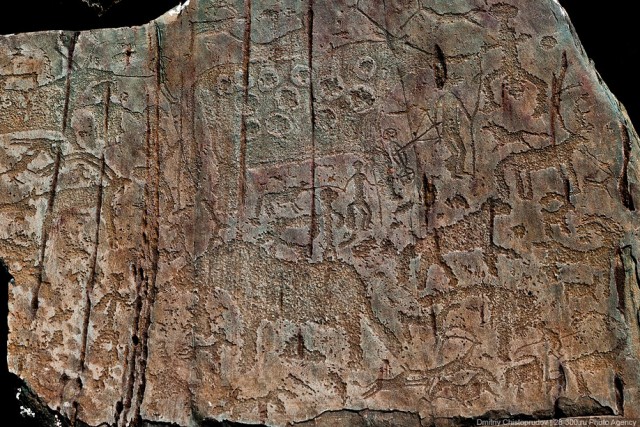 Dmitriy Chistoprudov | 28-300.ru Photo Agency